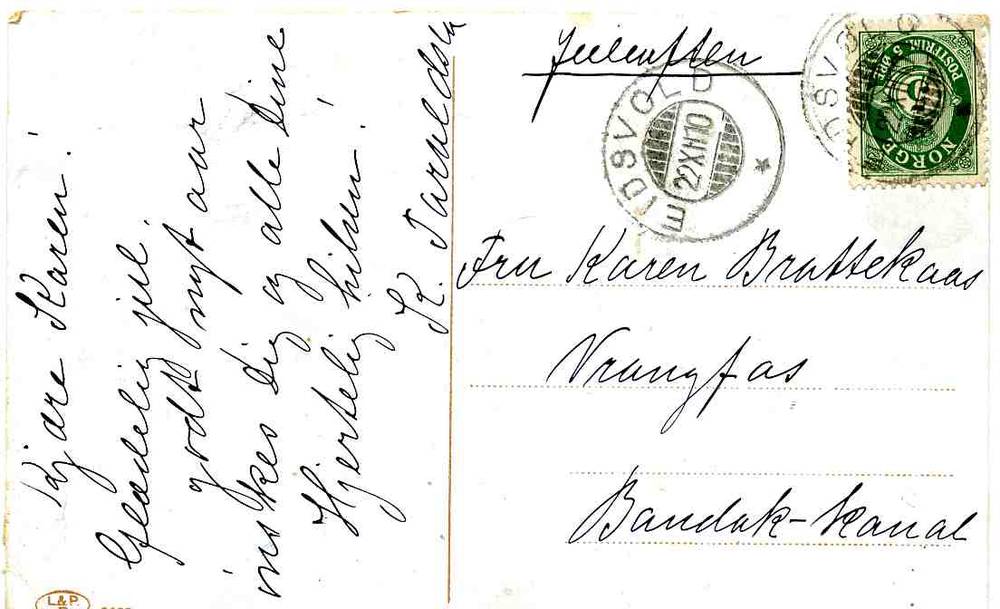 Kjære Karen!
Glædelig jul.
godt nyt aar
ønskes Dig og alle Dine
Hjertelig hilsen!
K. Taraldsen
Juleaften
EIDSVOLD
22 XII 10
POSTFRIM. 5 ØRE
NORGE
Fru Karen Brattekaas
Vrangfos
Bandak-Kanal
L&P.